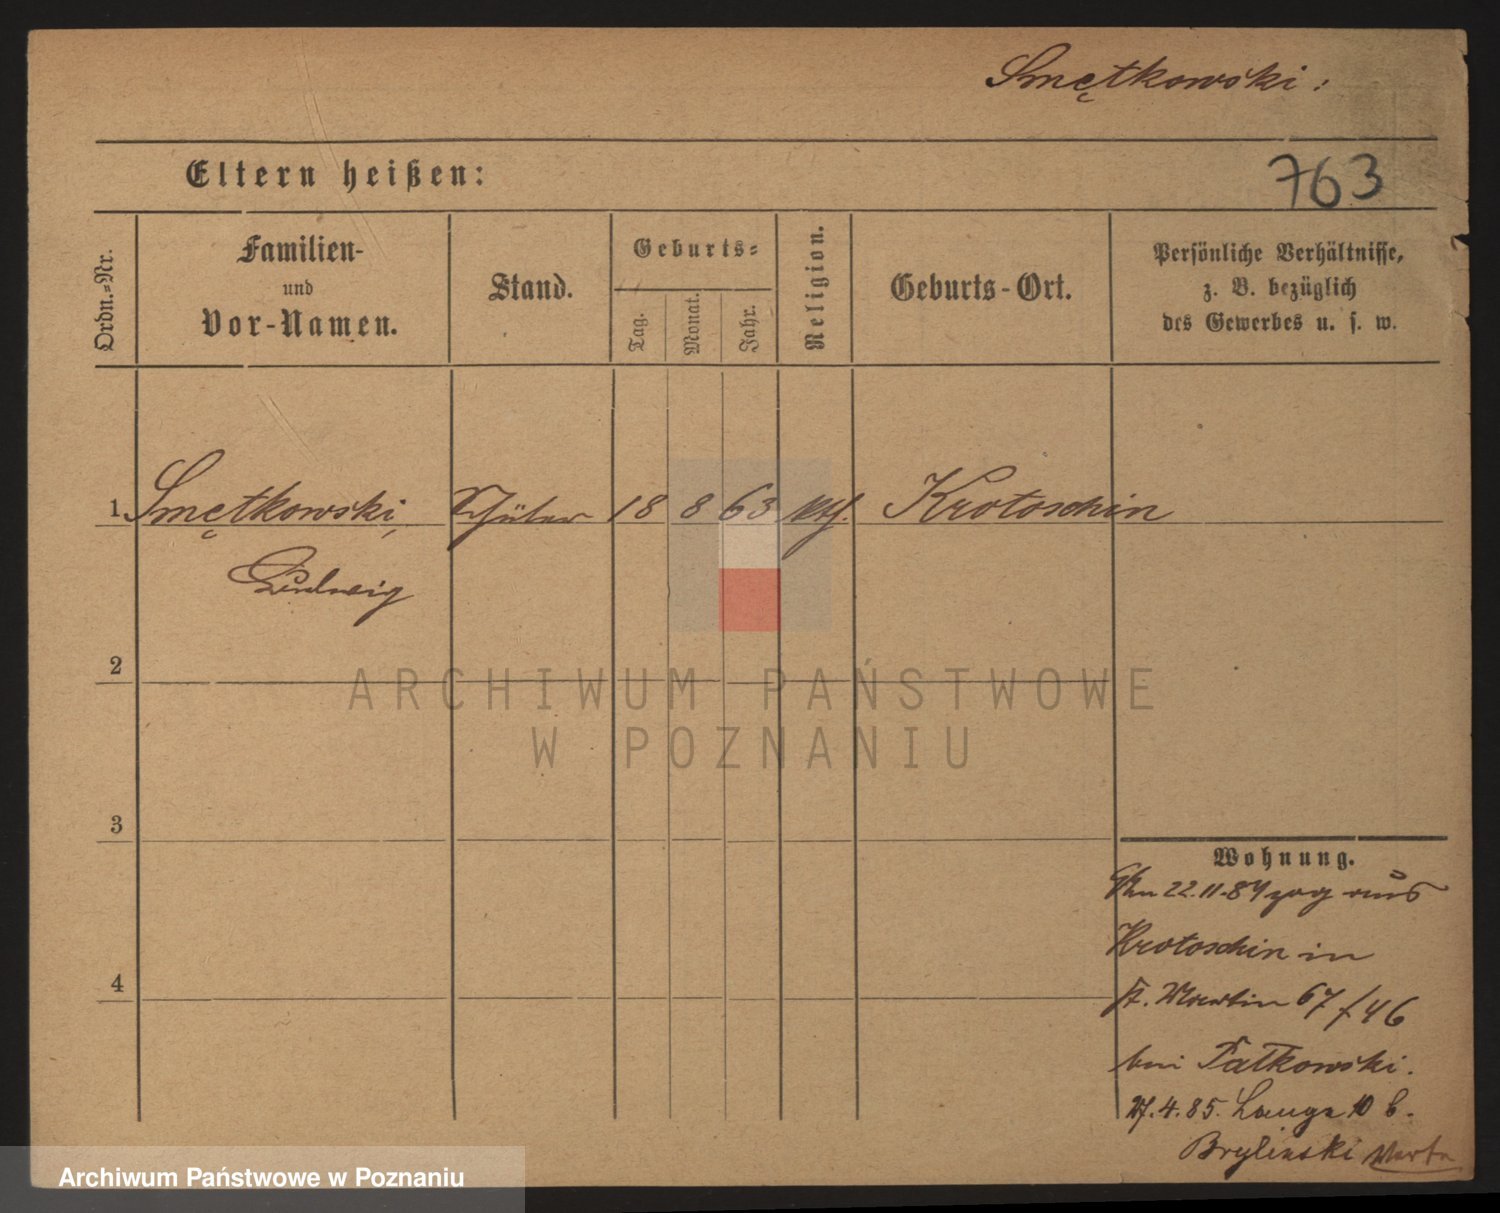 Smętkowski.
763
Eltern heißen:
Ordn.-Nr.
Familien-
und
Vor-Namen.
Stand.
Geburts-
Tag.
Monat.
Jahr.
Religion.
Geburts-Ort.
Persönliche Verhältnisse,
z. B. bezüglich
des Gewerbes u. s. w.
1 Smętkowski, Schüler 18 8 63 kth. Krotoschin
Ludwig
2
3
4
Wohnung.
22.11.84 zog aus
Krotoschin in
St. Martin 67/46
bei Fatkowski.
27.4.85. Lange 10 b.
Brylinski
ARCHIWUM PAŃSTWOWE
W POZNANIU
Archiwum Państwowe w Poznaniu